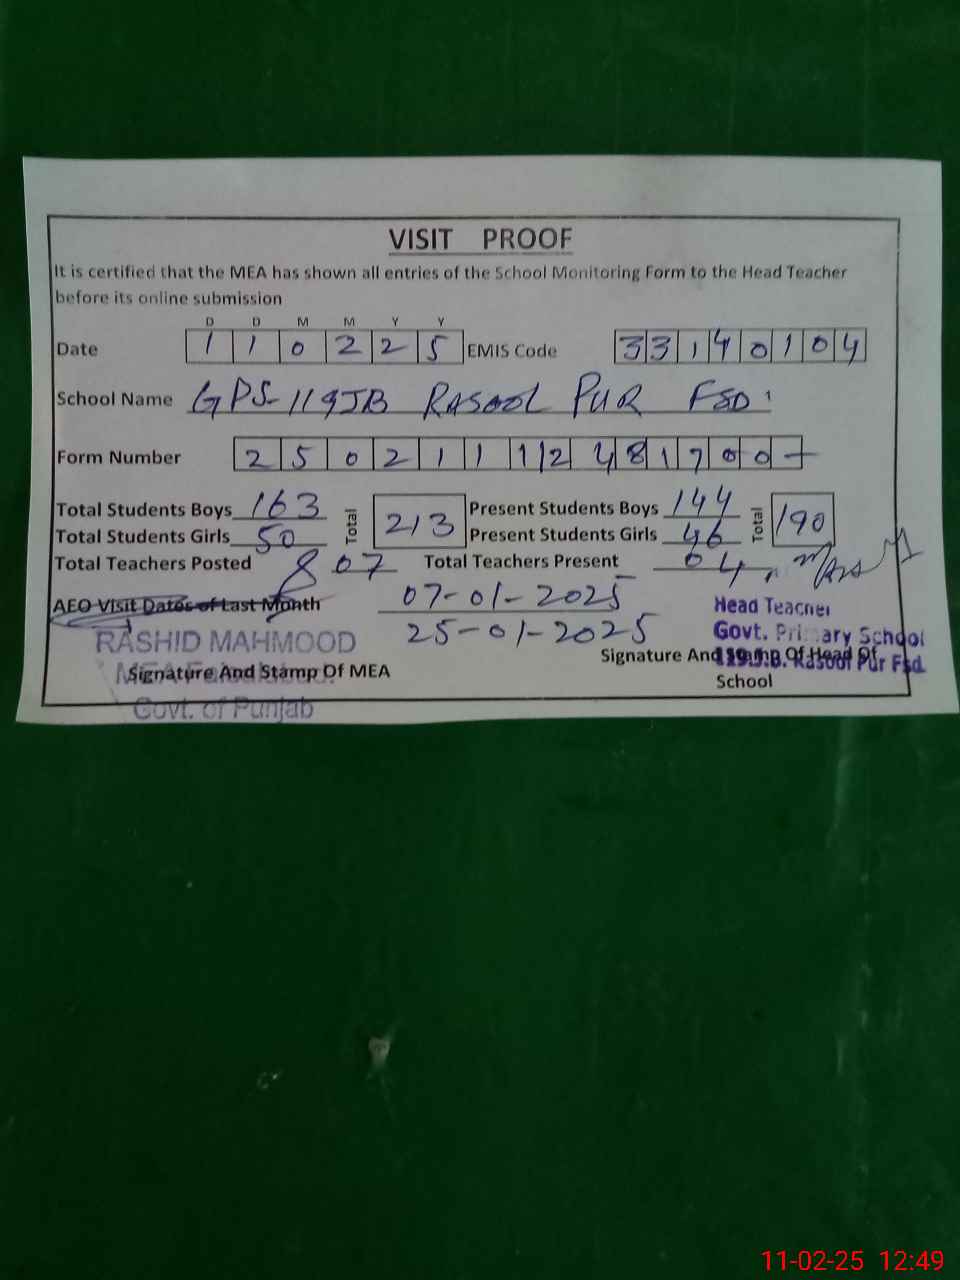 VISIT PROOF
It is certified that the MEA has shown all entries of the School Monitoring Form to the Head Teacher
before its online submission
D D M M Y Y
Date 1 1 0 2 2 5 EMIS Code 3 3 1 4 0 1 0 4
School Name GPS-119JB RASOOL PUR FSD
Form Number 2 5 0 2 1 1 1 2 4 8 1 7 0 0 -
Total Students Boys 163 Total 213 Present Students Boys 144 Total 190
Total Students Girls 50 Present Students Girls 46
Total Teachers Posted 07 Total Teachers Present 04
AEO Visit Dates of Last Month 07-01-2025
25-01-2025
RASHID MAHMOOD
MEA
Govt. of Punjab
Signature And Stamp Of MEA
Head Teacher
Govt. Primary School
119J.B. Rasool Pur Fsd.
Signature And Stamp Of Head Of
School
11-02-25 12:49